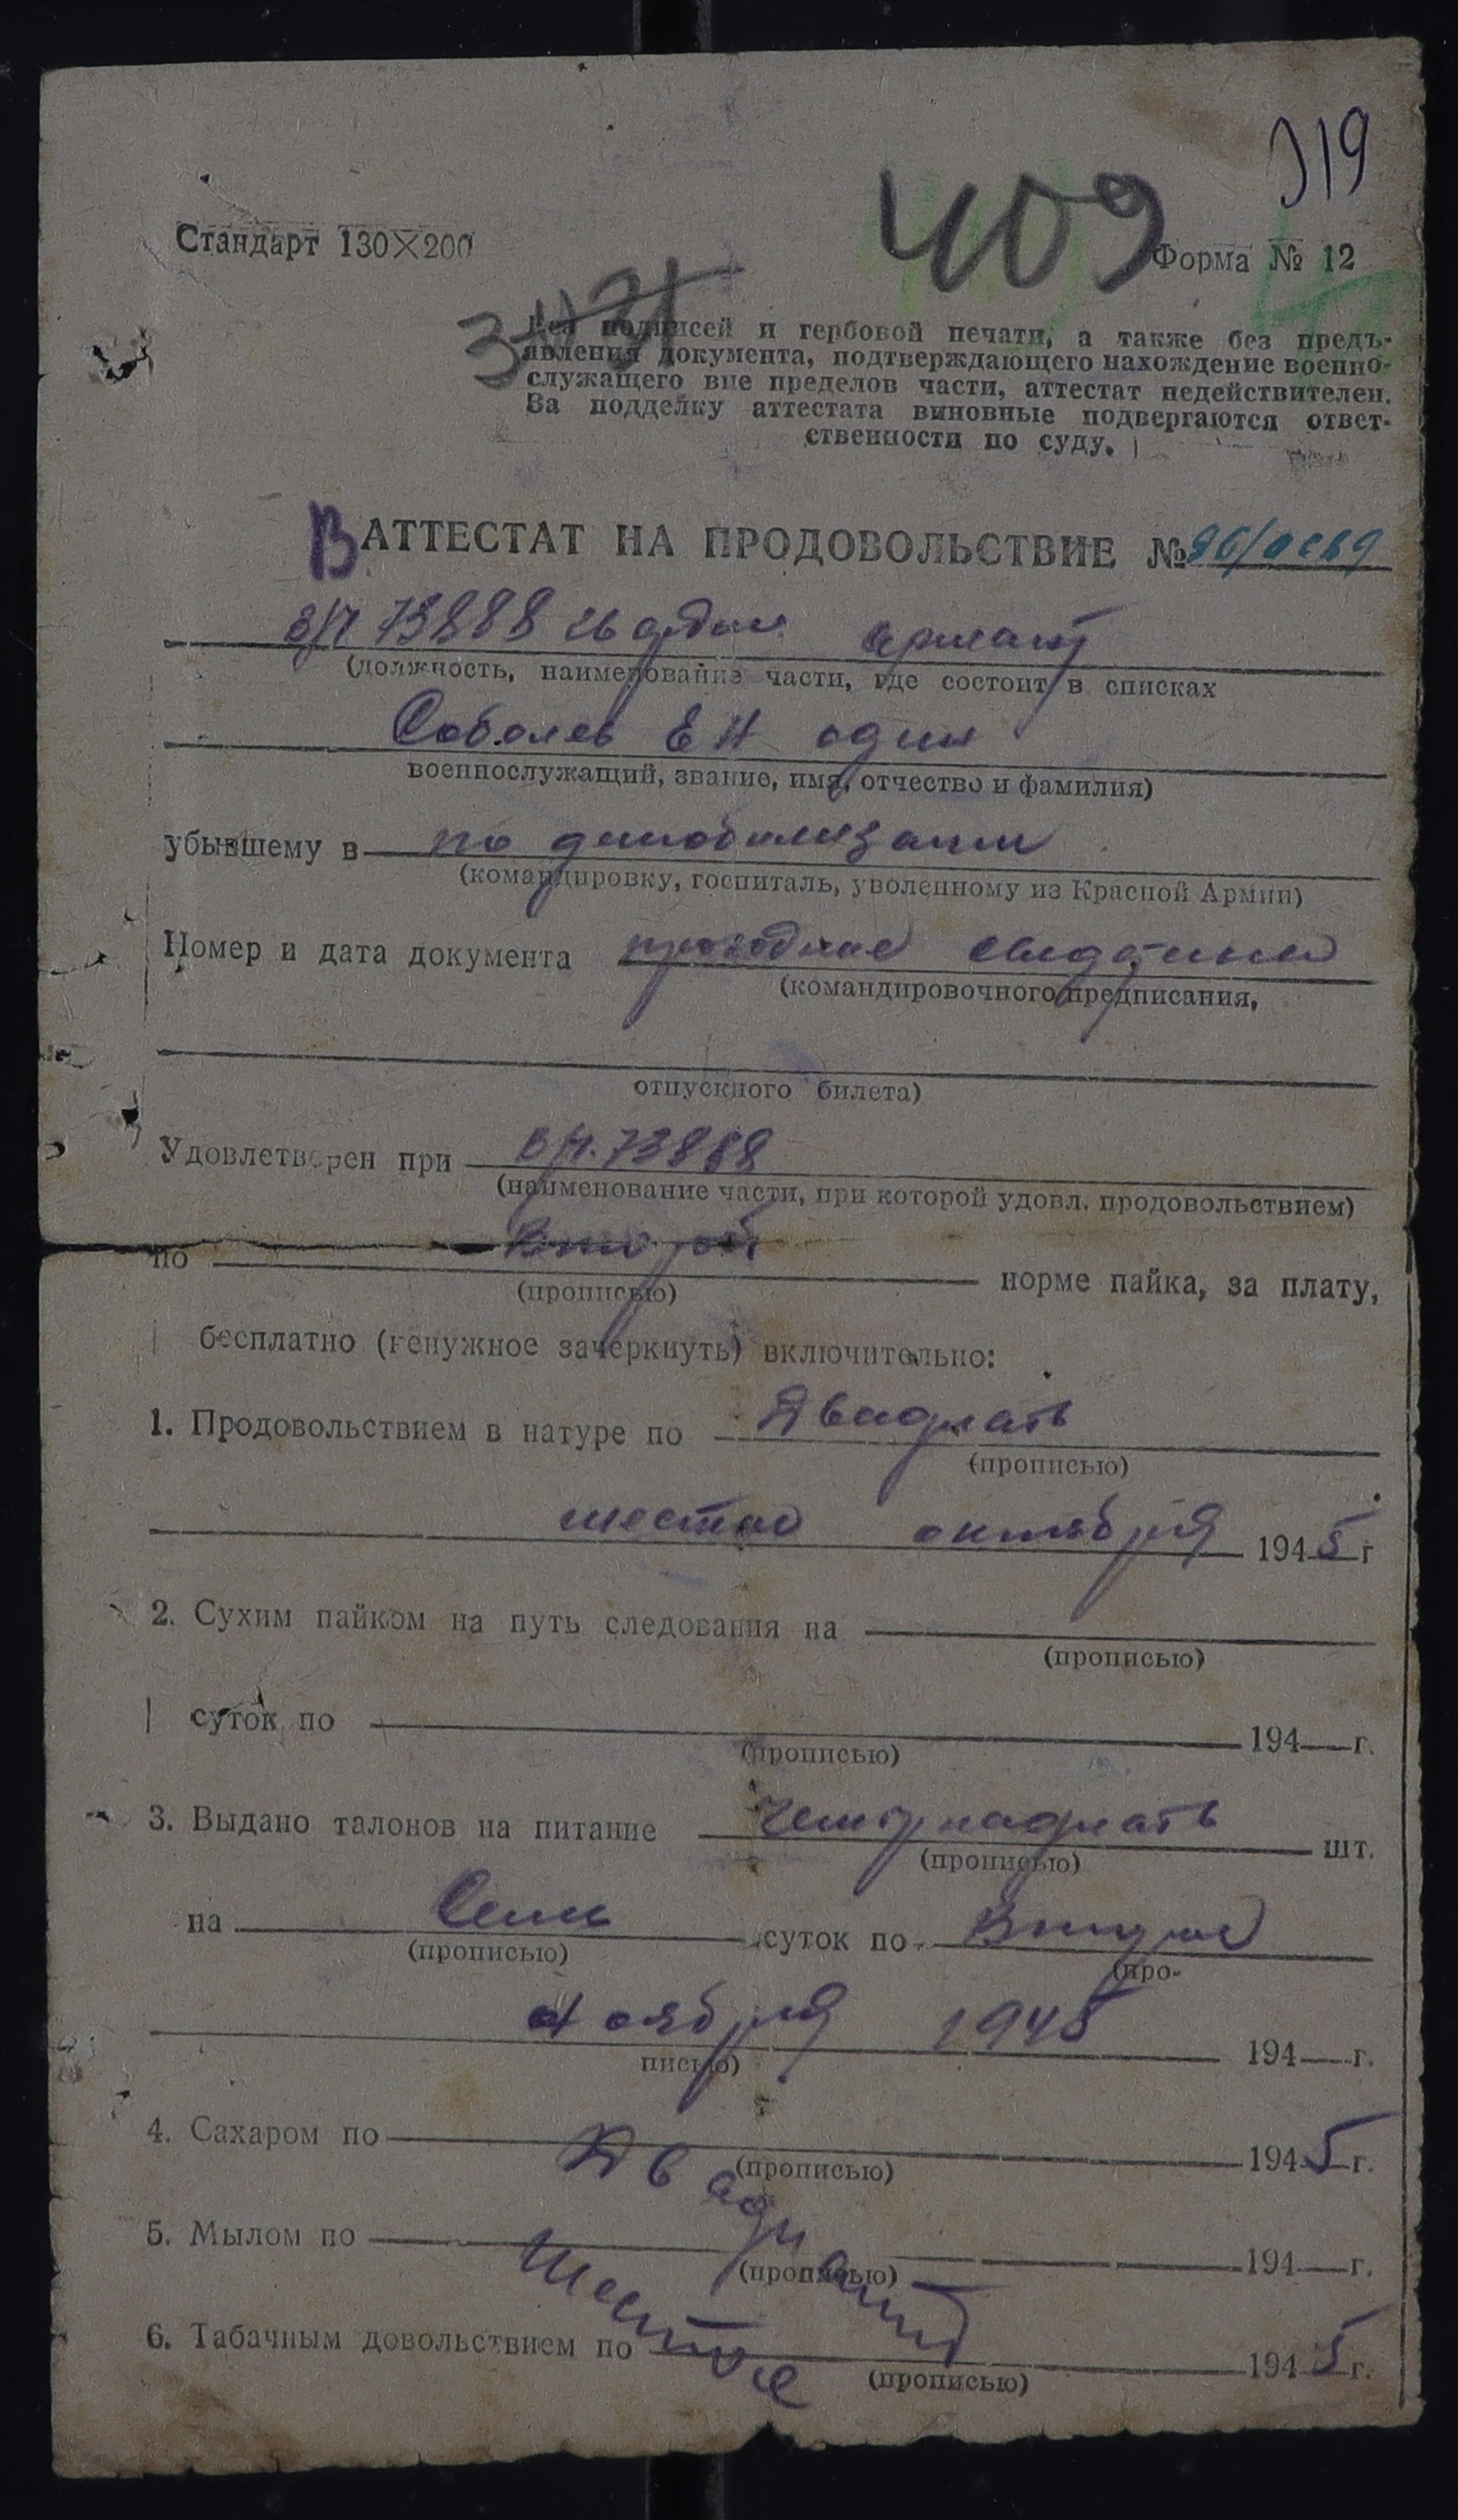 319
409
Стандарт 130×200
Форма № 12
Без подписей и гербовой печати, а также без предъ-
явления документа, подтверждающего нахождение военно-
служащего вне пределов части, аттестат недействителен.
За подделку аттестата виновные подвергаются ответ-
ственности по суду.
В АТТЕСТАТ НА ПРОДОВОЛЬСТВИЕ №
в/ч 73888
(должность, наименование части, где состоит в списках
Соболев Е Н один
военнослужащий, звание, имя, отчество и фамилия)
убывшему в по
(командировку, госпиталь, уволенному из Красной Армии)
Номер и дата документа проходное
(командировочного предписания,
отпускного билета)
Удовлетворен при в/ч. 73888
(наименование части, при которой удовл. продовольствием)
по Второй норме пайка, за плату,
(прописью)
бесплатно (ненужное зачеркнуть) включительно:
1. Продовольствием в натуре по Двадцать
(прописью)
шестое октября 1945 г
2. Сухим пайком на путь следования на
(прописью)
суток по 194 г.
(прописью)
3. Выдано талонов на питание четырнадцать шт.
(прописью)
на Семь суток по Второе
(прописью) (про-
ноября 1945 194 г.
писью)
4. Сахаром по Двадцать 1945 г.
(прописью)
5. Мылом по шестое 194 г.
(прописью)
6. Табачным довольствием по 1945 г.
(прописью)